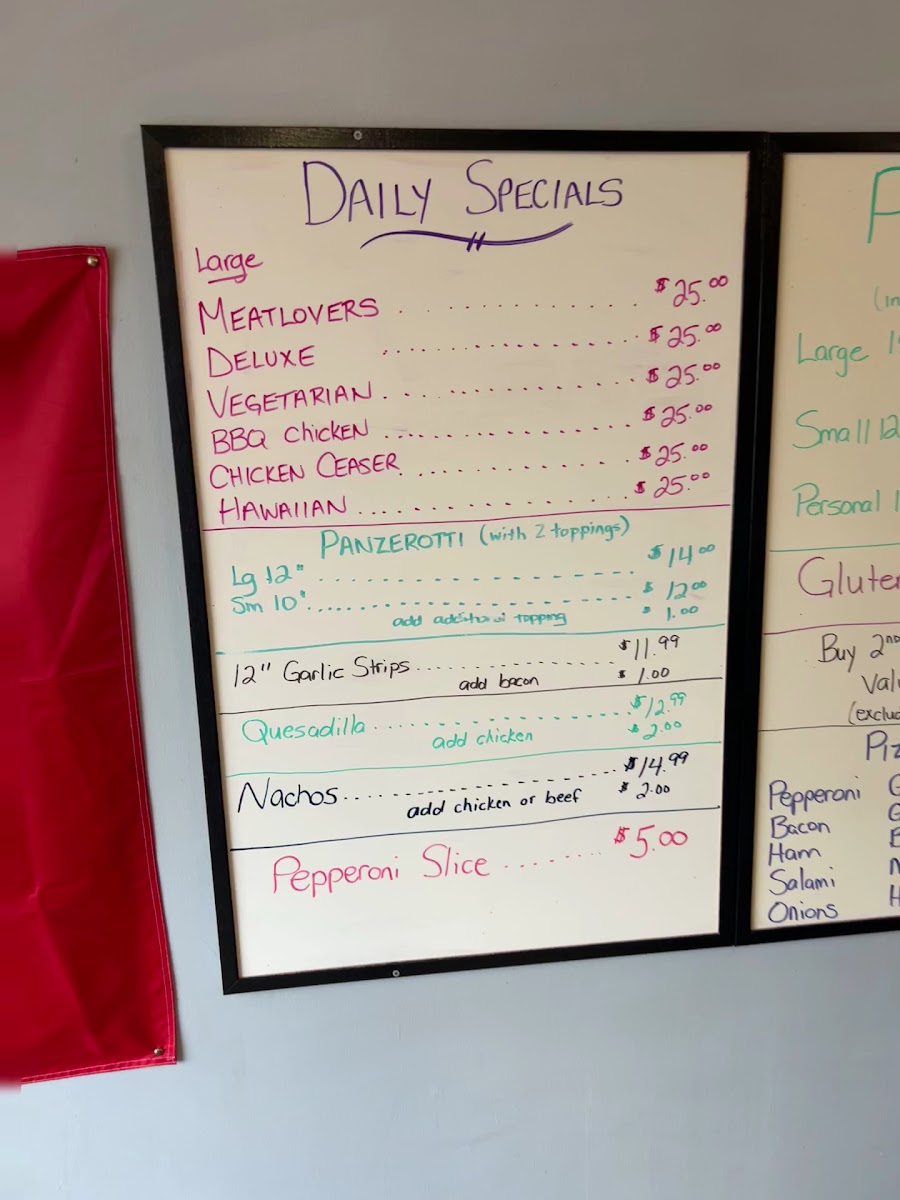 DAILY SPECIALS
Large
MEATLOVERS . . . . . . . . . . . . . $25.00
DELUXE . . . . . . . . . . . . . $25.00
VEGETARIAN . . . . . . . . . . . . . $25.00
BBQ CHICKEN . . . . . . . . . . . . . $25.00
CHICKEN CEASER . . . . . . . . . . . . . $25.00
HAWAIIAN . . . . . . . . . . . . . $25.00
PANZEROTTI (with 2 toppings)
Lg 12" . . . . . . . . . . . . . $14.00
Sm 10" . . . . . . . . . . . . . $12.00
add additional topping $1.00
12" Garlic Strips . . . . . . . . . . . . . $11.99
add bacon $1.00
Quesadilla . . . . . . . . . . . . . $12.99
add chicken $2.00
Nachos . . . . . . . . . . . . . $14.99
add chicken or beef $2.00
Pepperoni Slice . . . . . . . . $5.00
Large
Small 12
Personal
Buy 2nd
Pepperoni
Bacon
Ham
Salami
Onions